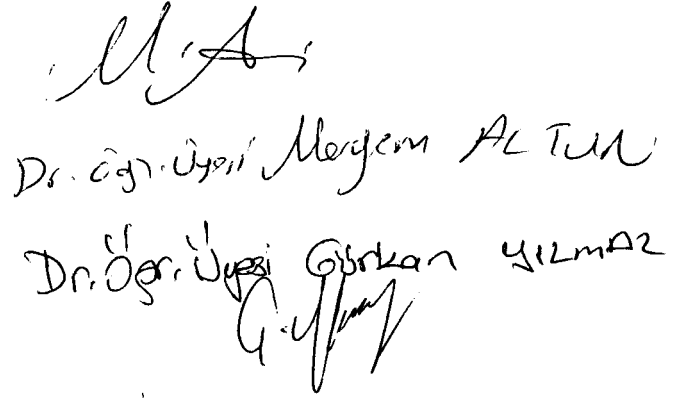 Dr. Öğr. Üyesi Meryem ALTUN
Dr. Öğr. Üyesi Gürkan YILMAZ